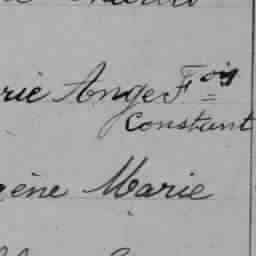 rie Ange Fois
Constant
gène Marie